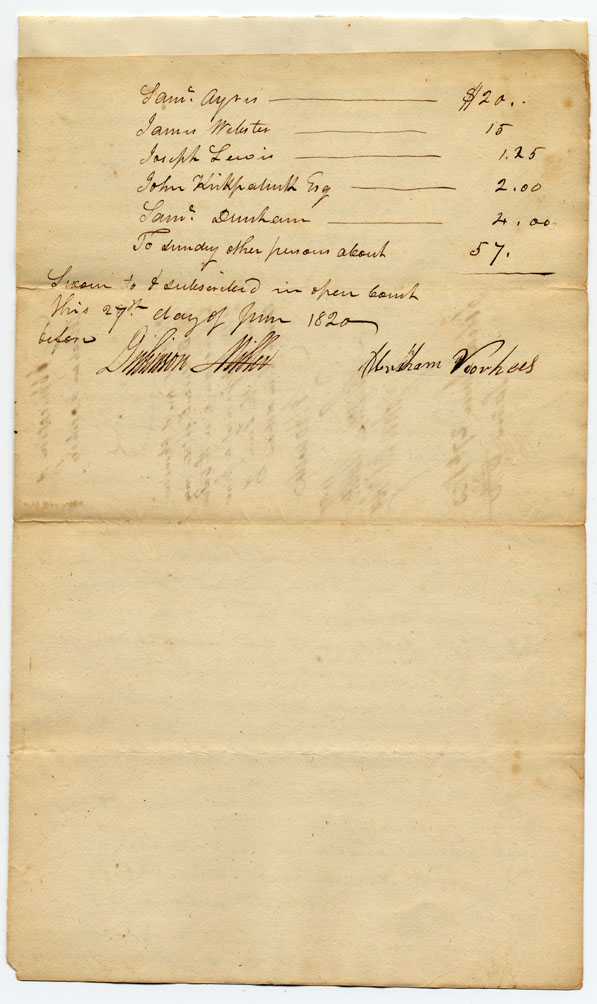 Saml. Ayres — $20..
James Webster — 15
Joseph Lewis — 1.25
John Kirkpatrick Esq — 2.00
Saml. Dunham — 4.00
To sunday other persons about 57.
Sworn to & subscribed in open Court
this 27th day of June 1820
before
Dickinson Miller Abraham Voorhees